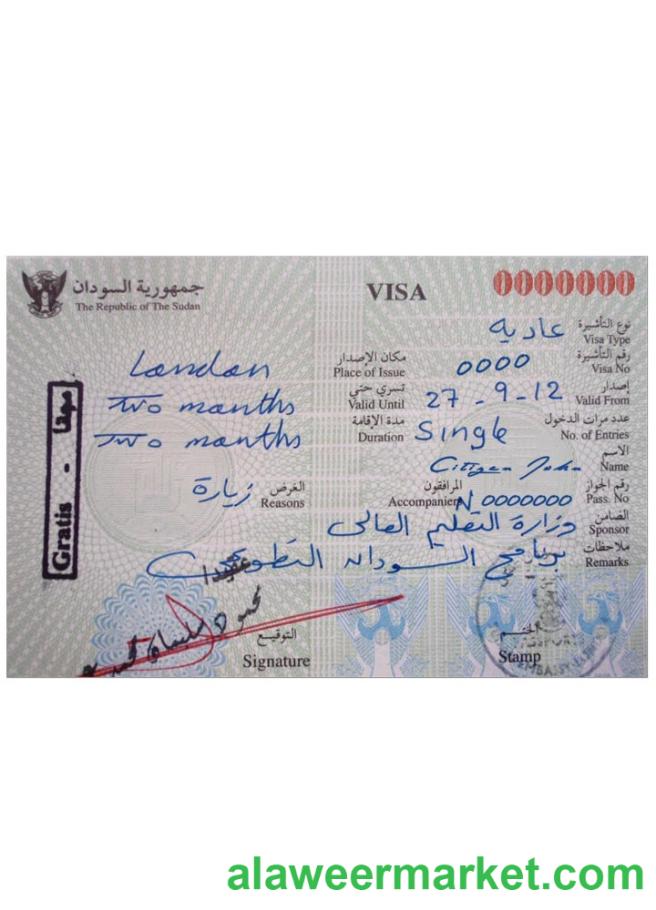 جمهورية السودان
The Republic of The Sudan
VISA
0000000
نوع التأشيرة
Visa Type
عادية
رقم التأشيرة
Visa No
0000
مكان الإصدار
Place of Issue
London
إصدار
Valid From
27-9-12
تسري حتى
Valid Until
Two months
عدد مرات الدخول
No. of Entries
Single
مدة الإقامة
Duration
Two months
الاسم
Name
Citizen John
رقم الجواز
Pass. No
N 0000000
المرافقون
Accompanien
الغرض
Reasons
زيارة
الضامن
Sponsor
وزارة التعليم العالى
ملاحظات
Remarks
برنامج السودان التطوعى
Gratis
التوقيع
Signature
محمود سليمان محمد
الختم
Stamp
PASSPORTS
EMBASSY
alaweermarket.com